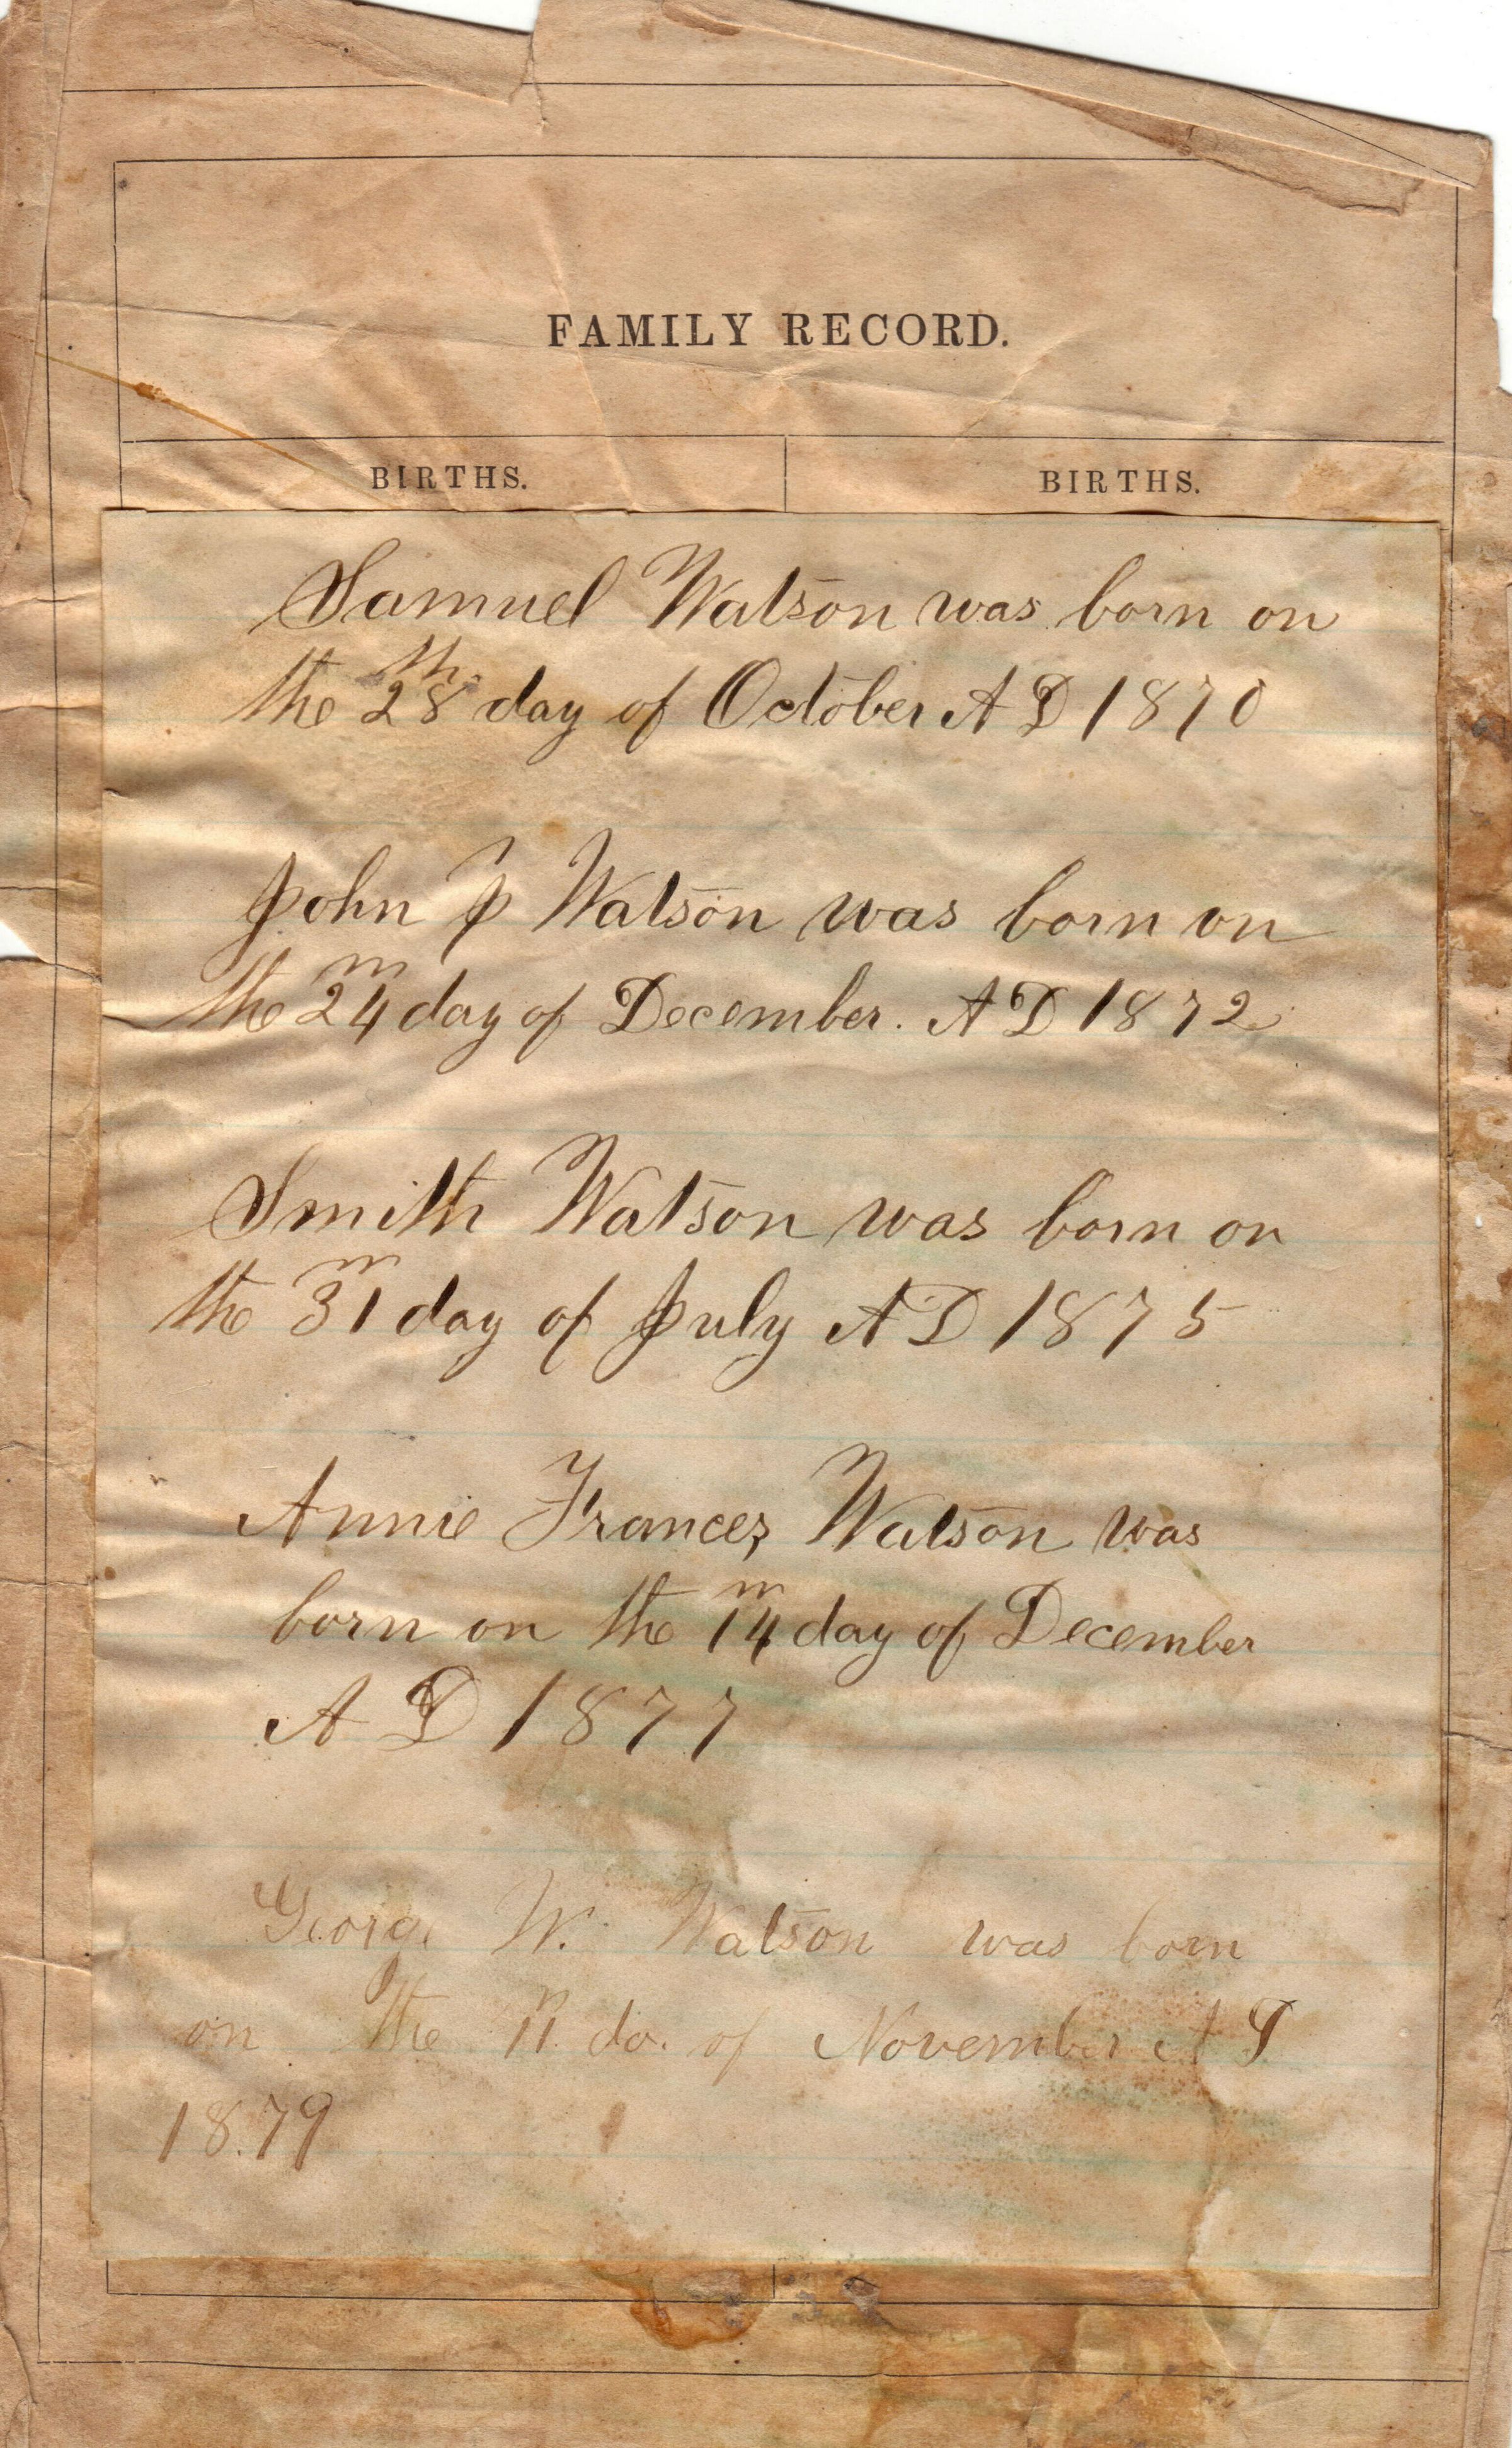 FAMILY RECORD.
BIRTHS. BIRTHS.
Samuel Watson was born on
the 28th day of October A D 1870
John J Watson was born on
the 24th day of December. A D 1872
Smith Watson was born on
the 31th day of July A D 1875
Annie Frances Watson was
born on the 14th day of December
A D 1877
George W. Watson was born
on the 11th da. of November A D
1879